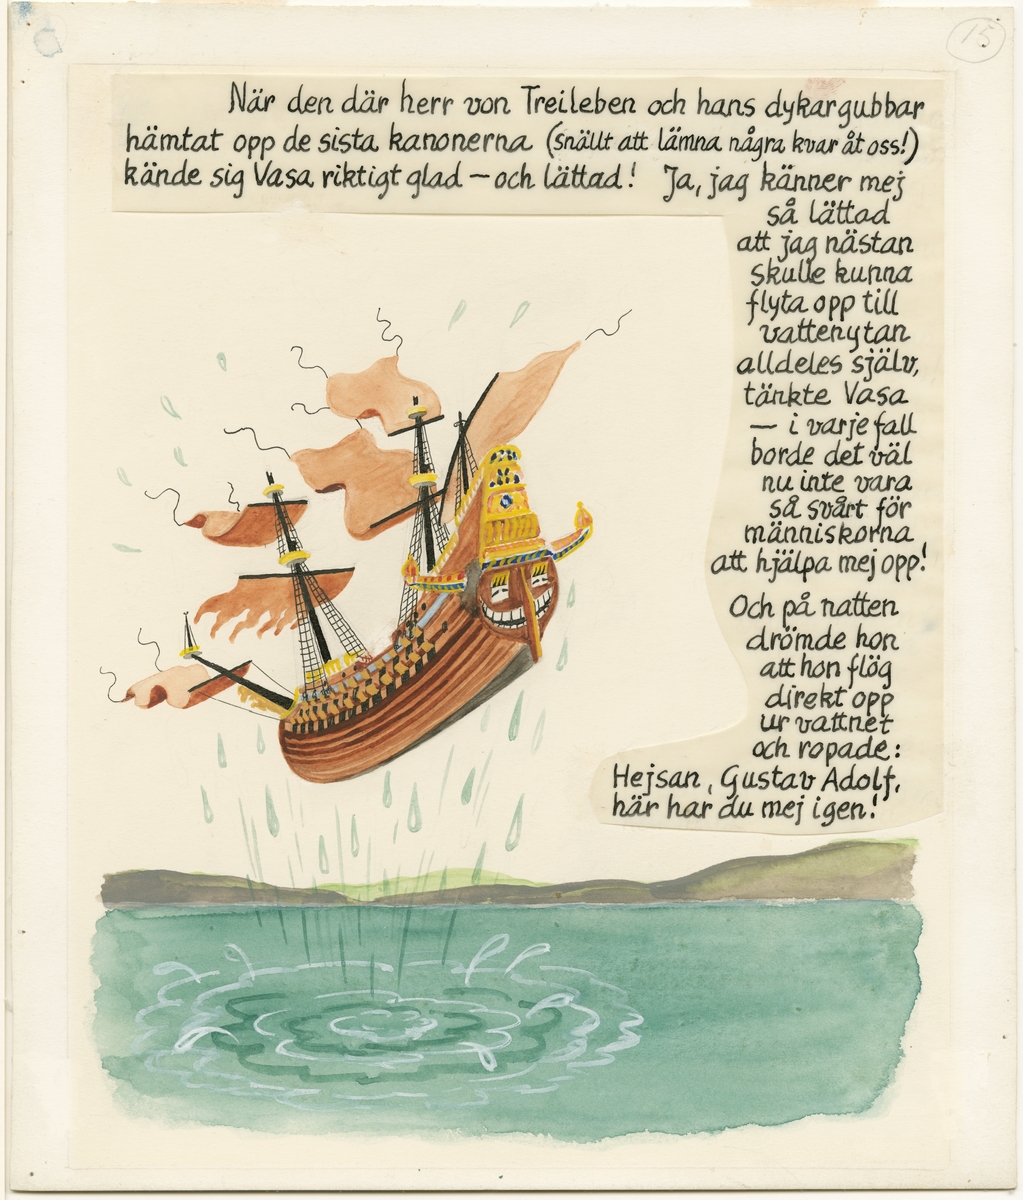 15
När den där herr von Treileben och hans dykargubbar
hämtat opp de sista kanonerna (snällt att lämna några kvar åt oss!)
kände sig Vasa riktigt glad – och lättad! Ja, jag känner mej
så lättad
att jag nästan
skulle kunna
flyta opp till
vattenytan
alldeles själv,
tänkte Vasa
– i varje fall
borde det väl
nu inte vara
så svårt för
människorna
att hjälpa mej opp!
Och på natten
drömde hon
att hon flög
direkt opp
ur vattnet
och ropade:
Hejsan, Gustav Adolf,
här har du mej igen!